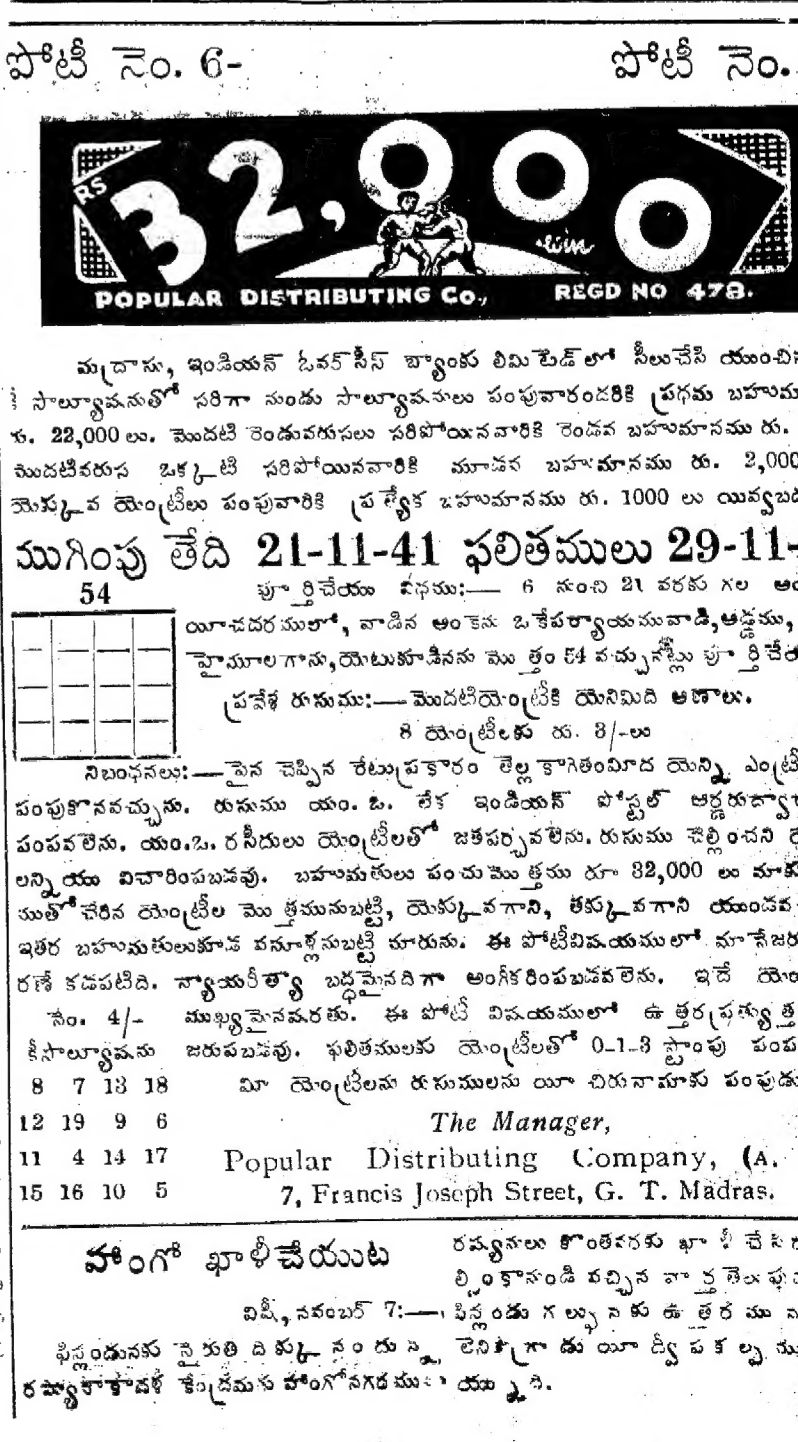 పోటీ నెం. 6-
పోటీ నెం.
RS 32,000
POPULAR DISTRIBUTING Co., REGD NO 478.
మద్రాసు, ఇండియన్ ఓవర్‌సీస్ బ్యాంకు లిమిటెడ్ లో సీలుచేసి యుంచిన
కీ సొల్యూషనుతో సరిగా నుండు సొల్యూషనులు పంపువారందరికి ప్రధమ బహుమ
రు. 22,000 లు. మొదటి రెండువరుసలు సరిపోయినవారికి రెండవ బహుమానము రు.
మొదటివరుస ఒక్కటి సరిపోయినవారికి మూడవ బహుమానము రు. 2,000
యెక్కువ యెంట్రీలు పంపువారికి ప్రత్యేక బహుమానము రు. 1000 లు యివ్వబడ
ముగింపు తేది 21-11-41 ఫలితములు 29-11-
54
పూర్తిచేయు విధము:— 6 నుంచి 21 వరకు గల అం
యీచదరములో, వాడిన అంకెను ఒకేపర్యాయమువాడి, అడ్డము,
ఐమూలగాను, యెటుకూడినను మొత్తం 54 వచ్చునట్లు పూర్తిచేయ
ప్రవేశ రుసుము:— మొదటియెంట్రీకి యెనిమిది అణాలు.
8 యెంట్రీలకు రు. 3/-లు
నిబంధనలు:— పైన చెప్పిన రేటుప్రకారం తెల్ల కాగితంమీద యెన్ని ఎంట్రీ
పంపుకొనవచ్చును. రుసుము యం. ఓ. లేక ఇండియన్ పోస్టల్ ఆర్డరుద్వారా
పంపవలెను. యం.ఓ. రసీదులు యెంట్రీలతో జతపర్చవలెను. రుసుము చెల్లించని
లన్నియు విచారింపబడవు. బహుమతులు పంచుమొత్తము రూ 32,000 లు మాకు
ముతో చేరిన యెంట్రీల మొత్తమునుబట్టి, యెక్కువగాని, తక్కువగాని యుండవ
ఇతర బహుమతులుకూడ వసూళ్లనుబట్టి మారును. ఈ పోటీవిషయములో మా నేజరు
రణే కడపటిది. న్యాయరీత్యా బద్ధమైనదిగా అంగీకరింపబడవలెను. ఇదే యెం
నెం. 4/- ముఖ్యమైనషరతు. ఈ పోటీ విషయములో ఉత్తరప్రత్యుత్త
కీసొల్యూషను జరుపబడవు. ఫలితములకు యెంట్రీలతో 0-1-3 స్టాంపు పంప
8 7 13 18 మీ యెంట్రీలను రుసుములను యీ చిరునామాకు పంపుడు
12 19 9 6 The Manager,
11 4 14 17 Popular Distributing Company, (A.
15 16 10 5 7, Francis Joseph Street, G. T. Madras.
హాంగో ఖాళీచేయుట
విషీ, నవంబర్ 7:—
ఫిన్లండునకు నైరుతి దిక్కునందున్న
రష్యాకాకావళ కేంద్రమగు హాంగోనగరము
రష్యనులు కొంతవరకు ఖాళీ చేసిన
ల్సింకినుండి వచ్చిన వార్త తెలుపు
ఫిన్లండు గల్ఫునకు ఉత్తరమున
లెనిన్‌గ్రాడు యీ ద్వీపకల్పము
యున్నది.